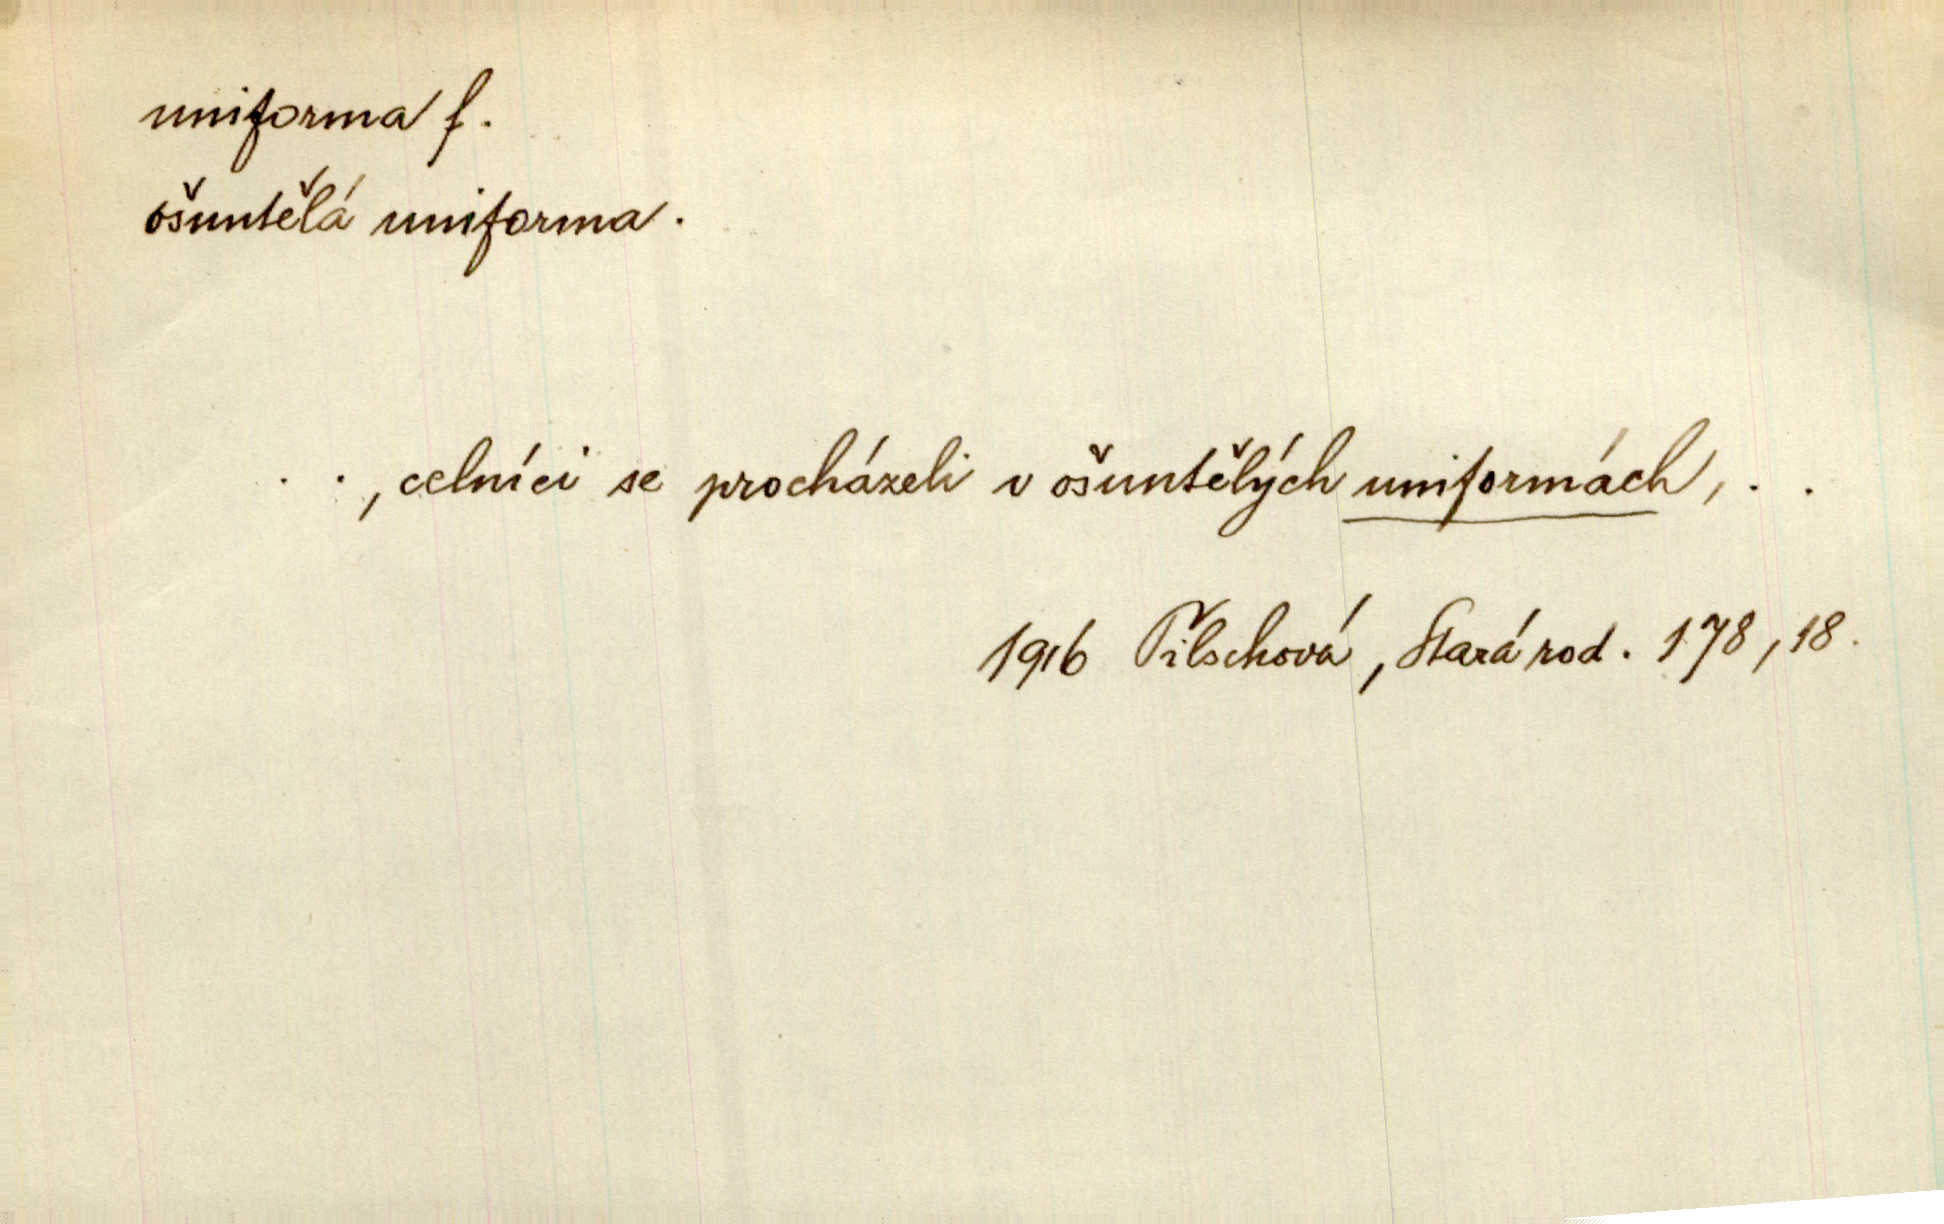 uniforma f.
ošuntělá uniforma.
. . , celníci se procházeli v ošuntělých uniformách, . .
1916 Pilschová, Stará rod. 178, 18.